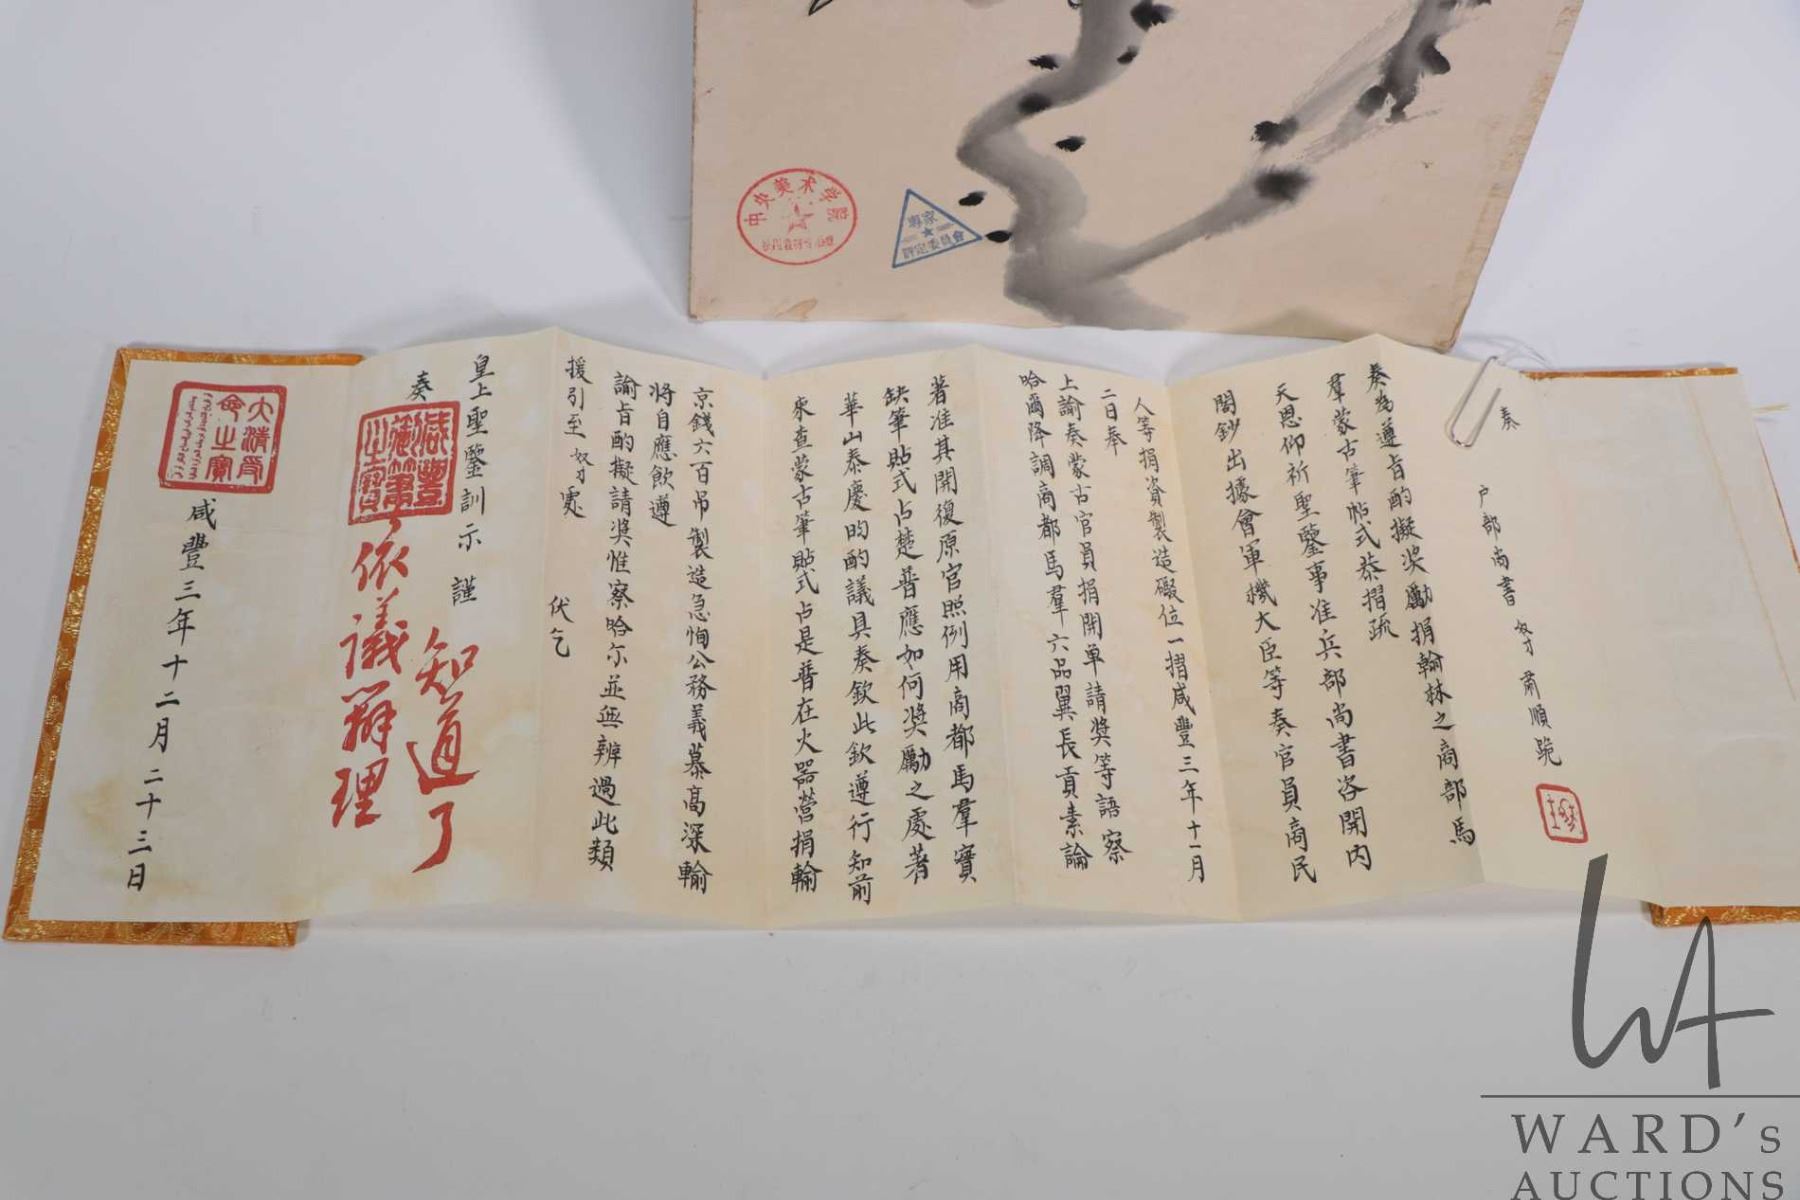 中央美术学院
專家
評定委員會
奏
戶部尚書 奴才 肅順 跪
奏為遵旨酌擬奖勵捐輸林之商部馬
羣蒙古筆帖式恭摺疏
天恩仰祈聖鑒事准兵部尚書咨開內
閣鈔出據會軍機大臣等奏官員商民
人等捐資製造礮位一摺咸豐三年十一月
二日奉
上諭奏蒙古官員捐開單請奖等語察
哈爾降調商都馬羣六品翼長貢素論
著准其開復原官照例用商都馬羣實
缺筆貼式占楚普應如何奖勵之處著
華山泰慶昀酌議具奏欽此欽遵行知前
來查蒙古筆貼式占是普在火器營捐輸
京錢六百吊製造急恂公務義慕高深輸
將自應飲遵
諭旨酌擬請奖惟察哈尔並無辨過此類
援引至奴才處 伏乞
皇上聖鑒訓示 謹
奏
咸豐御筆之寶
知道了
依議辦理
大清受命之寶
咸豐三年十二月二十三日
WARD's
AUCTIONS